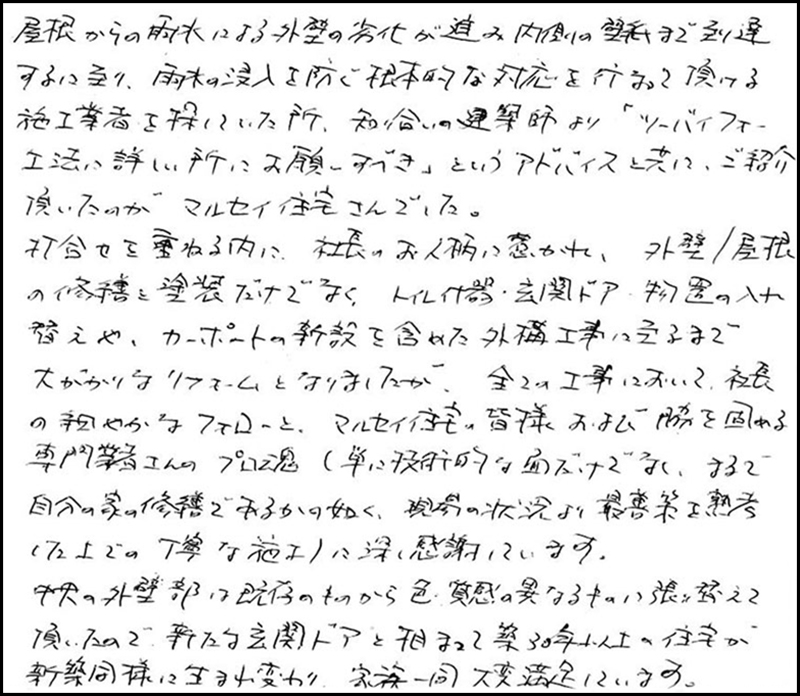 屋根からの雨水による外壁の劣化が進み内側の壁紙まで到達
するに至り、雨水の浸入を防ぐ根本的な対応を行なって頂ける
施工業者を探していた所、知り合いの建築師より「ツーバイフォー
工法に詳しい所にお願いすべき」というアドバイスと共に、ご紹介
頂いたのがマルセイ住宅さんでした。
打合せを重ねる内に、社長のお人柄に惹かれ、外壁/屋根
の修繕と塗装だけでなく、トイレ什器・玄関ドア・物置の入れ
替えや、カーポートの新設を含めた外構工事に至るまで
大がかりなリフォームとなりましたが、全ての工事において、社長
の細やかなフォローと、マルセイ住宅の皆様および脇を固める
専門業者さんのプロ魂(単に技術的な面だけでなく、まるで
自分の家の修繕であるかの如く、現場の状況より最善策を熟考
した上での丁寧な施工)に深く感謝しています。
中央の外壁部は既存のものから色・質感の異なるものに張り替えて
頂いたので、新たな玄関ドアと相まって築30年以上の住宅が
新築同様に生まれ変わり、家族一同大変満足しています。